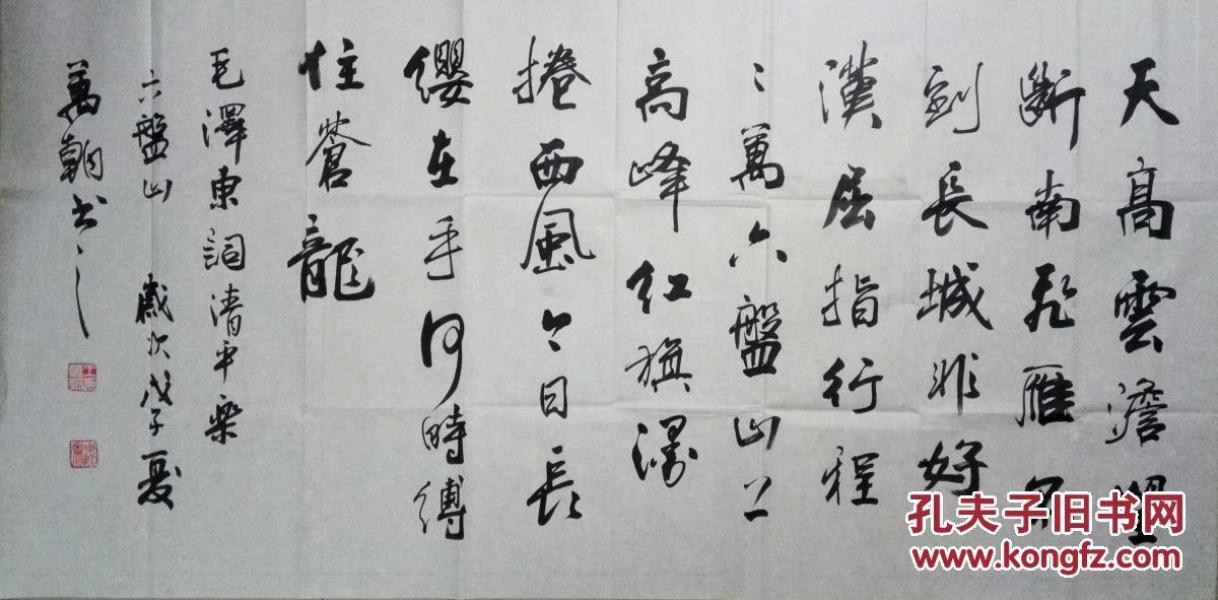 天高雲澹望
斷南飛雁不
到長城非好
漢屈指行程
二萬六盤山上
高峰紅旗漫
捲西風今日長
纓在手何時縛
住蒼龍
毛澤東詞清平樂
六盤山 歲次戊子夏
萬朝書之
孔夫子旧书网
www.kongfz.com